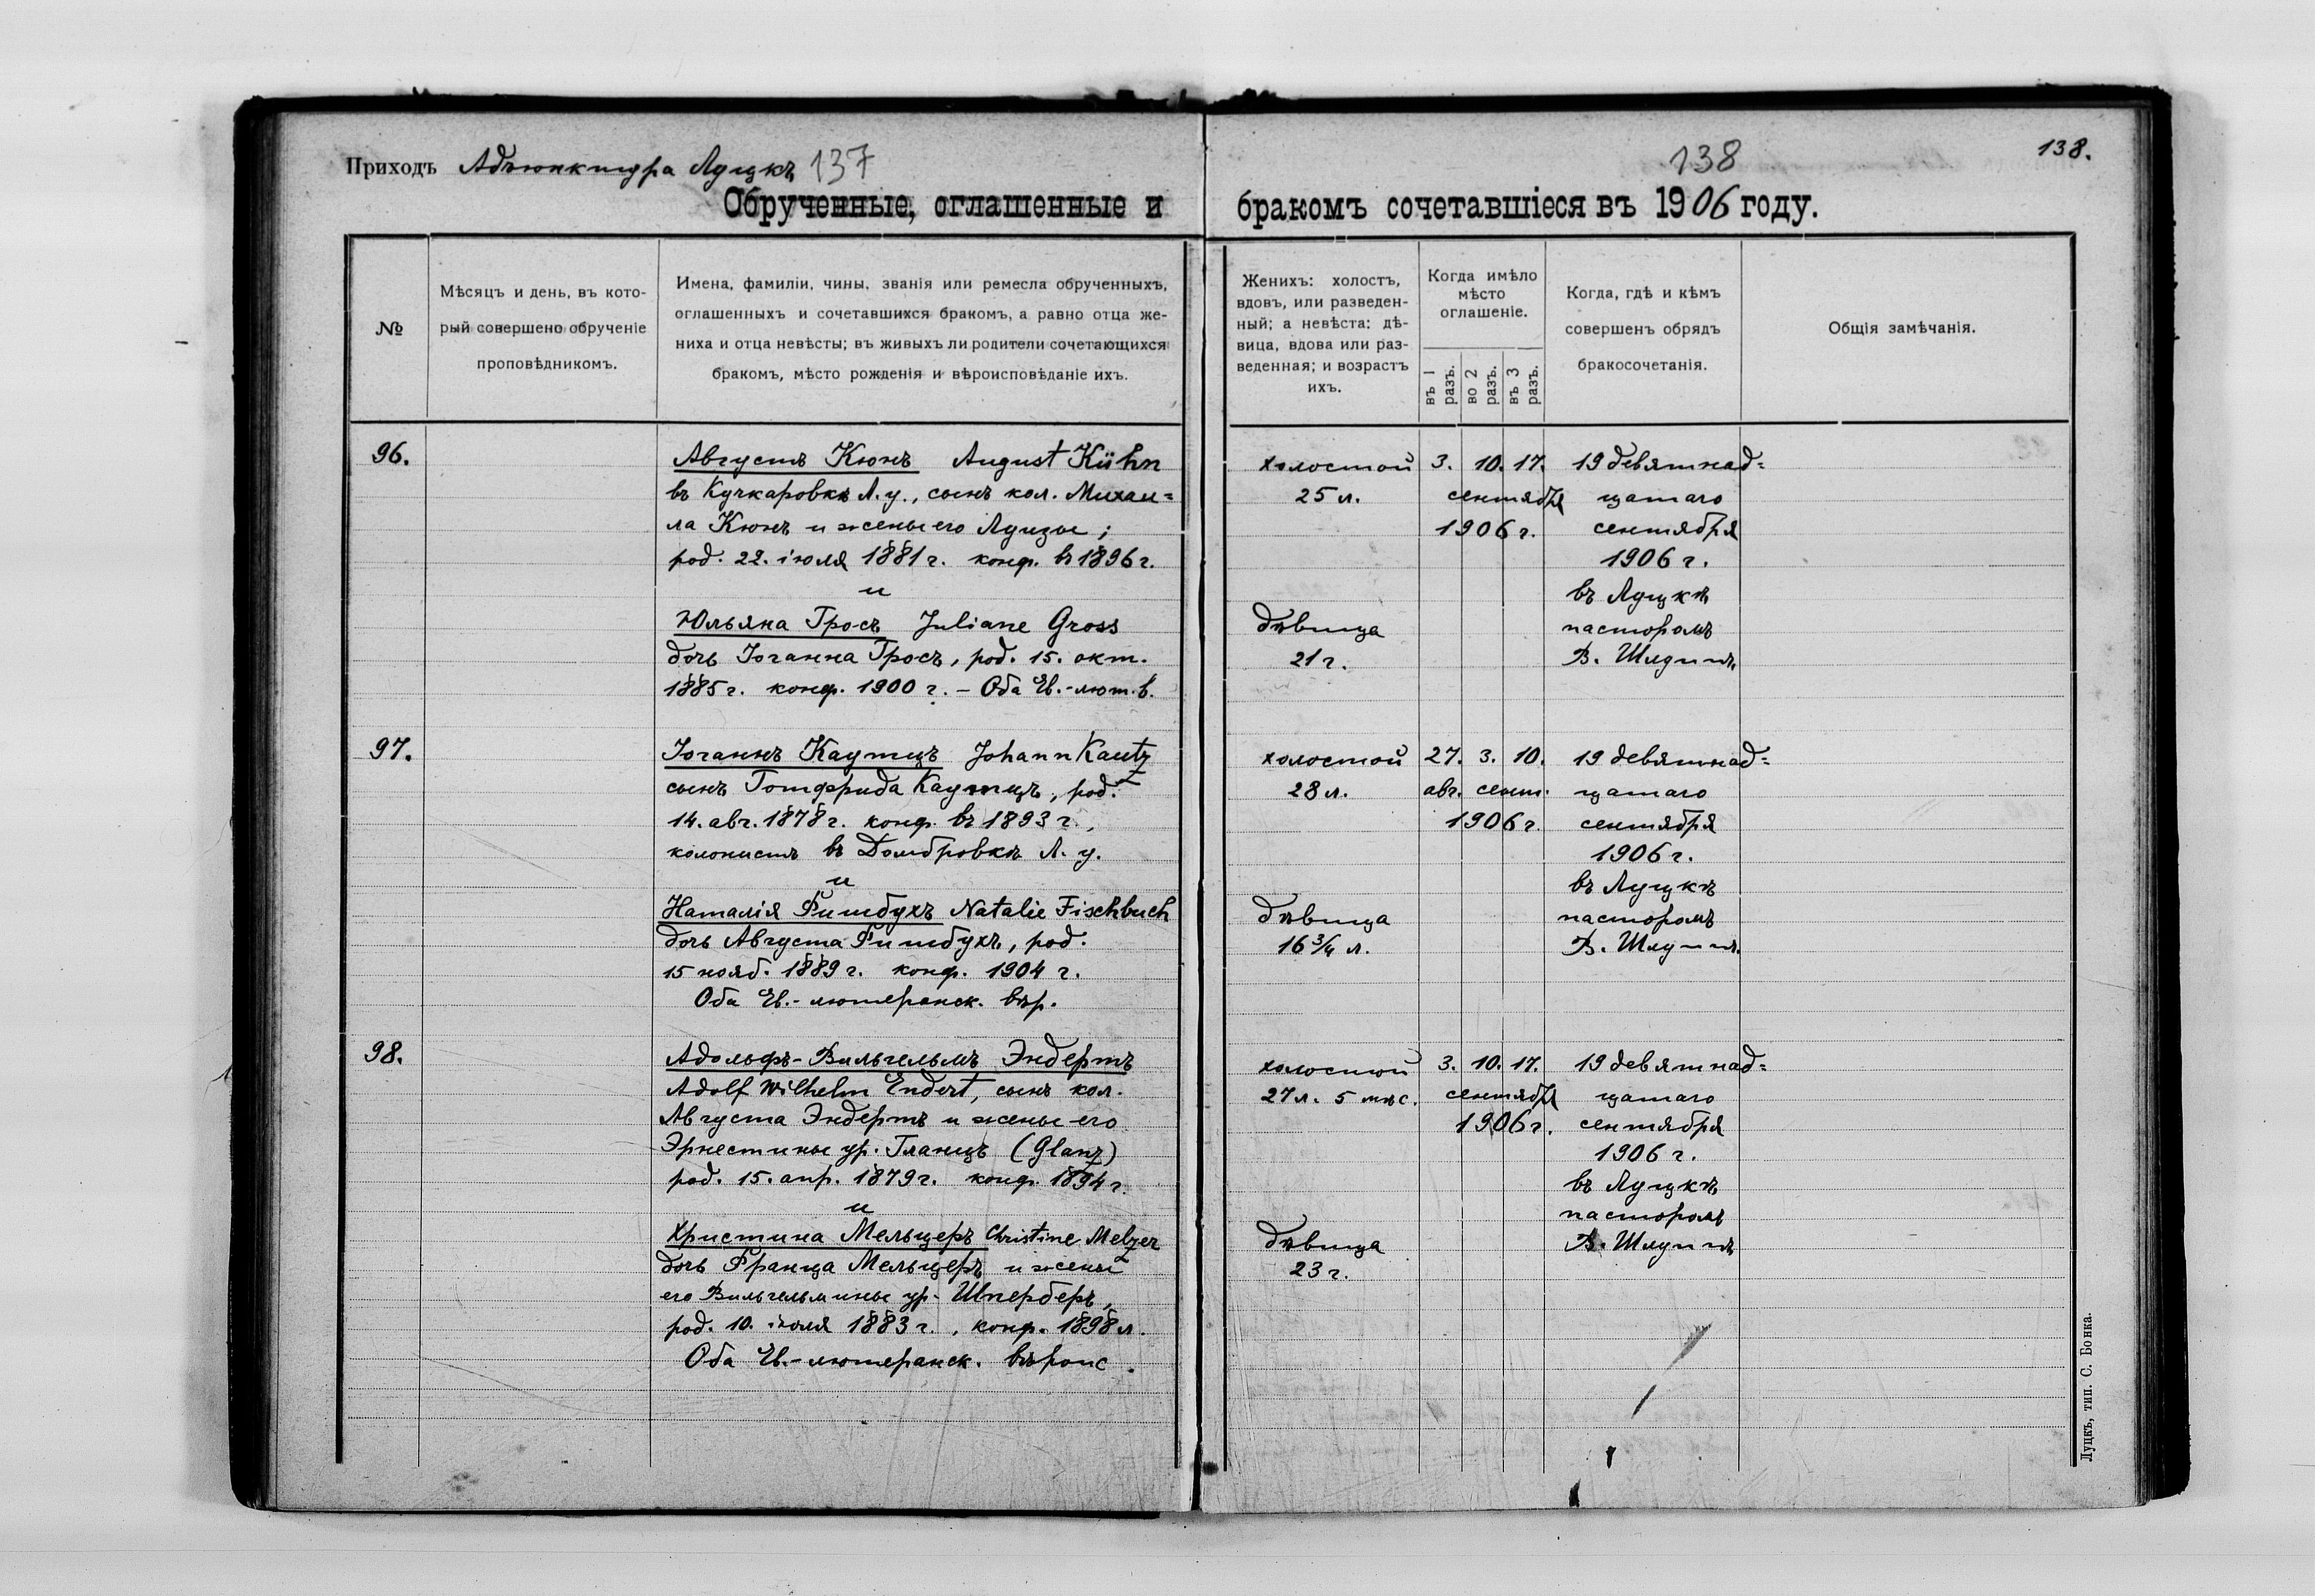 Приходъ Адъюнктура Луцкъ 137
Обрученные, оглашенные и
№
Мѣсяцъ и день, въ кото-
рый совершено обрученіе
проповѣдникомъ.
Имена, фамиліи, чины, званія или ремесла обрученныхъ,
оглашенныхъ и сочетавшихся бракомъ, а равно отца же-
ниха и отца невѣсты; въ живыхъ ли родители сочетающихся
бракомъ, мѣсто рожденія и вѣроисповѣданіе ихъ.
96.
Августъ Кюнъ August Kühn
въ Кучкаровкѣ Л. у., сынъ кол. Михаи=
ла Кюнъ и жены его Луизы;
род. 22. іюля 1881 г. конф. въ 1896 г.
и
Юльяна Гросъ Juliane Gross
дочь Іоганна Гросъ, род. 15. окт.
1885 г. конф. 1900 г. – Оба Ев.-лют. в.
97.
Іоганнъ Каутцъ Johann Kautz
сынъ Готфрида Каутцъ, род.
14. авг. 1878 г. конф. въ 1893 г.,
колонистъ въ Домбровкѣ Л. у.
и
Наталія Фишбухъ Natalie Fischbuch
дочь Августа Фишбухъ, род.
15 нояб. 1889 г. конф. 1904 г.
Оба Ев.-лютеранск. вѣр.
98.
Адольфъ-Вильгельмъ Эндертъ
Adolf Wilhelm Endert, сынъ кол.
Августа Эндертъ и жены его
Эрнестины ур. Гланцъ (Glanz)
род. 15. апр. 1879 г. конф. 1894 г.
и
Христина Мельцеръ Christine Melzer
дочь Франца Мельцеръ и жены
его Вильгельмины ур. Шперберъ,
род. 10. іюля 1883 г., конф. 1898 л.
Оба Ев.-лютеранск. вѣроис.
138
138.
бракомъ сочетавшіеся въ 1906 году.
Женихъ: холостъ,
вдовъ, или разведен-
ный; а невѣста: дѣ-
вица, вдова или раз-
веденная; и возрастъ
ихъ.
Когда имѣло
мѣсто
оглашеніе.
въ 1 разъ.
во 2 разъ.
въ 3 разъ.
Когда, гдѣ и кѣмъ
совершенъ обрядъ
бракосочетанія.
Общія замѣчанія.
холостой 3. 10. 17. 19 девятнад=
25 л. сентября цатаго
1906 г. сентября
1906 г.
въ Луцкѣ
дѣвица пасторомъ
21 г. В. Шлуппъ
холостой 27. 3. 10. 19 девятнад=
28 л. авг. сент. цатаго
1906 г. сентября
1906 г.
въ Луцкѣ
дѣвица пасторомъ
16 3/4 л. В. Шлуппъ.
холостой 3. 10. 17. 19 девятнад=
27 л. 5 мѣс. сентября цатаго
1906 г. сентября
1906 г.
въ Луцкѣ
пасторомъ
дѣвица В. Шлуппъ
23 г.
Луцкъ, тип. С. Бонка.